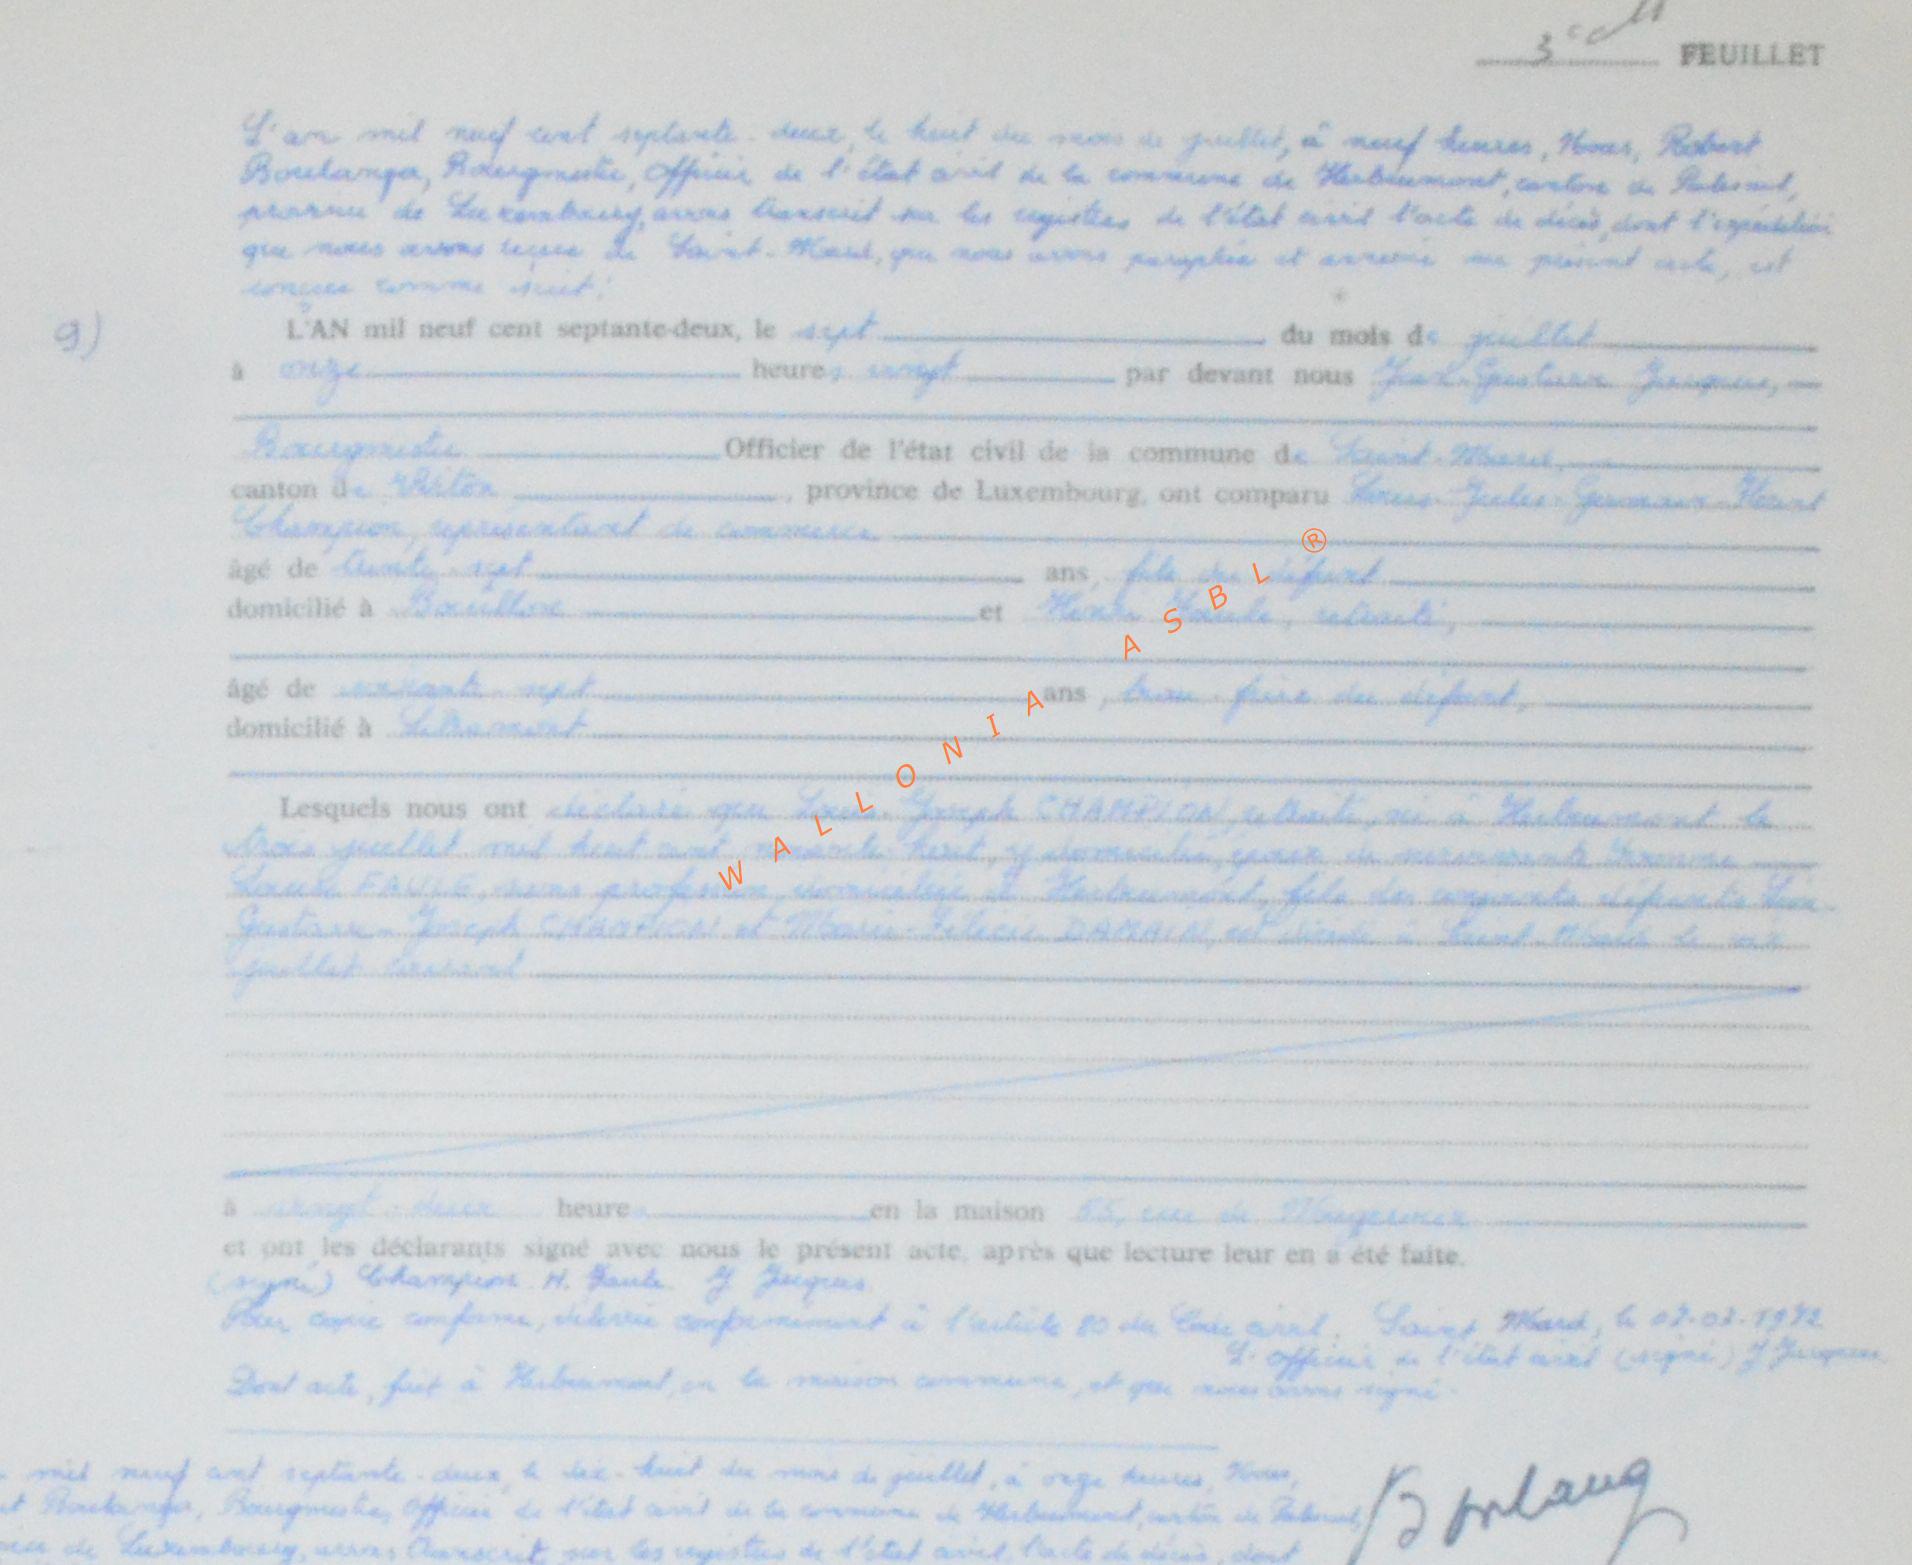 3e FEUILLET
L'an mil neuf cent septante-deux, le huit du mois de juillet, à neuf heures, Nous, Robert
Boulanger, Bourgmestre, Officier de l'état civil de la commune de Herbeumont, canton de Paliseul,
province de Luxembourg, avons transcrit sur les registres de l'état civil l'acte de décès, dont l'expédition
que nous avons reçue de Saint-Mard, que nous avons paraphée et annexée au présent acte, est
conçue comme suit:
9)
L'AN mil neuf cent septante-deux, le sept du mois de juillet
à onze heures vingt par devant nous Jean-Gustave Jacques,
Bourgmestre Officier de l'état civil de la commune de Saint-Mard,
canton de Virton, province de Luxembourg, ont comparu Louis-Jules-Germain-Florent
Champion, représentant de commerce
âgé de trente-sept ans, fils du défunt
domicilié à Bouillon et Henri Faule, retraité,
âgé de soixante-sept ans, beau-frère du défunt,
domicilié à Libramont
Lesquels nous ont déclaré que Louis-Joseph CHAMPION, retraité, né à Herbeumont le
trois juillet mil huit cent nonante-huit, y domicilié, époux de survivante Jeanne
Louise FAULE, sans profession, domiciliée à Herbeumont, fils des conjoints défunts
Gustave-Joseph CHAMPION et Marie-Félicie DAMAIN, est décédé à Saint-Mard le six
juillet courant
à vingt-deux heures en la maison 55, rue de
et ont les déclarants signé avec nous le présent acte, après que lecture leur en a été faite.
(signé) Champion H. Faule J Jacques
Pour copie conforme, délivrée conformément à l'article 80 du Code civil. Saint Mard, le 07-07-1972
L'officier de l'état civil (signé) J Jacques
Dont acte, fait à Herbeumont, en la maison commune, et que nous avons signé.
mil neuf cent septante-deux, le dix-huit du mois de juillet, à onze heures, Nous,
Boulanger, Bourgmestre, Officier de l'état civil de la commune de Herbeumont, canton de Paliseul,
de Luxembourg, avons transcrit sur les registres de l'état civil, l'acte de décès, dont
WALLONIA ASBL ®